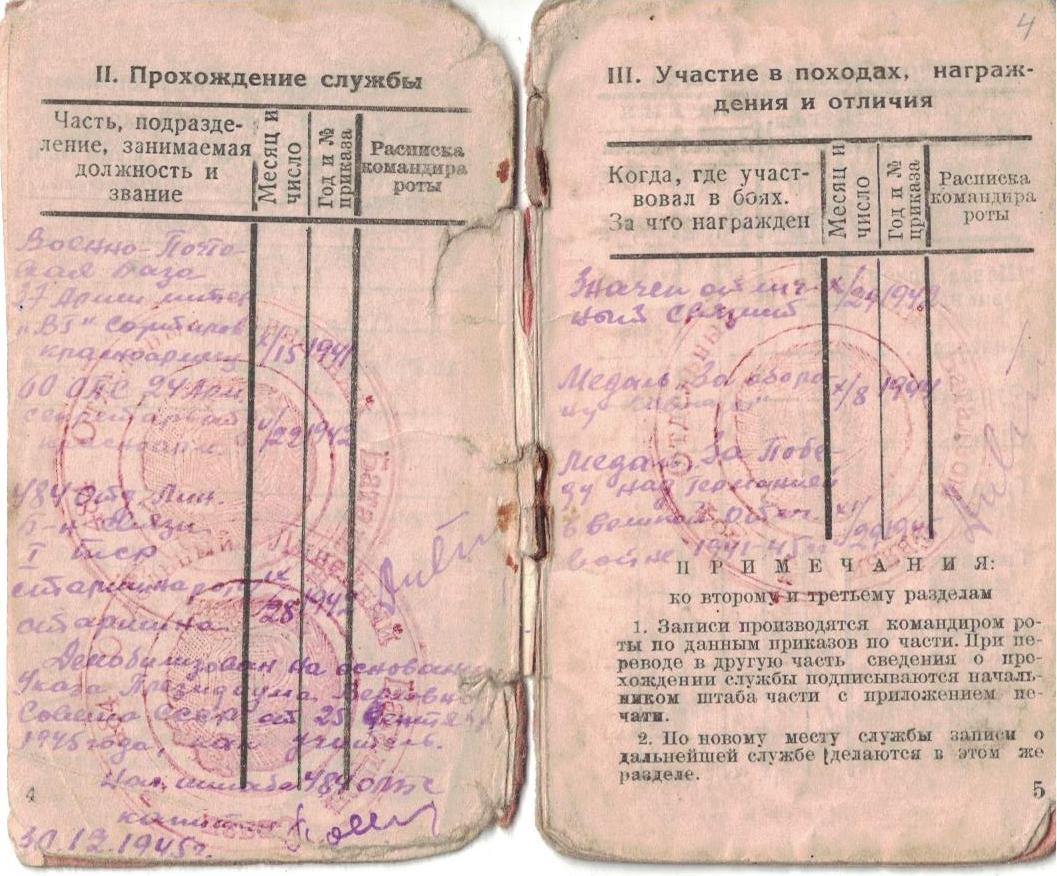 II. Прохождение службы
Часть, подразде-
ление, занимаемая
должность и
звание
Месяц и
число
Год и №
приказа
Расписка
командира
роты
Военно-Почто-
вая база
37 Армии литер
"ВГ" Сортиров
красноармеец X/15 1941
60 ОПС 24 Арм
V/22 1942
484 Отд. Лин.
б-н Связи
I тлср
старшина роты IX
28 1942
старшина
Демобилизован на основании
Указа Президиума Верховн
Совета СССР от 25 Сентяб
1945 года, как учитель.
Нач. штаба 484
капитан
30.12.1945г.
4
4
III. Участие в походах, награж-
дения и отличия
Когда, где участ-
вовал в боях.
За что награжден
Месяц и
число
Год и №
приказа
Расписка
командира
роты
Значек отлич- X/24
ный связист
Медаль За оборо X/8 1944
ну
Медаль За Побе-
ду над Германией
в Великой Отеч. XII/29 1945
войне 1941-45гг
ПРИМЕЧАНИЯ:
ко второму и третьему разделам
1. Записи производятся командиром ро-
ты по данным приказов по части. При пе-
реводе в другую часть сведения о про-
хождении службы подписываются началь-
ником штаба части с приложением пе-
чати.
2. По новому месту службы записи о
дальнейшей службе делаются в этом же
разделе.
5